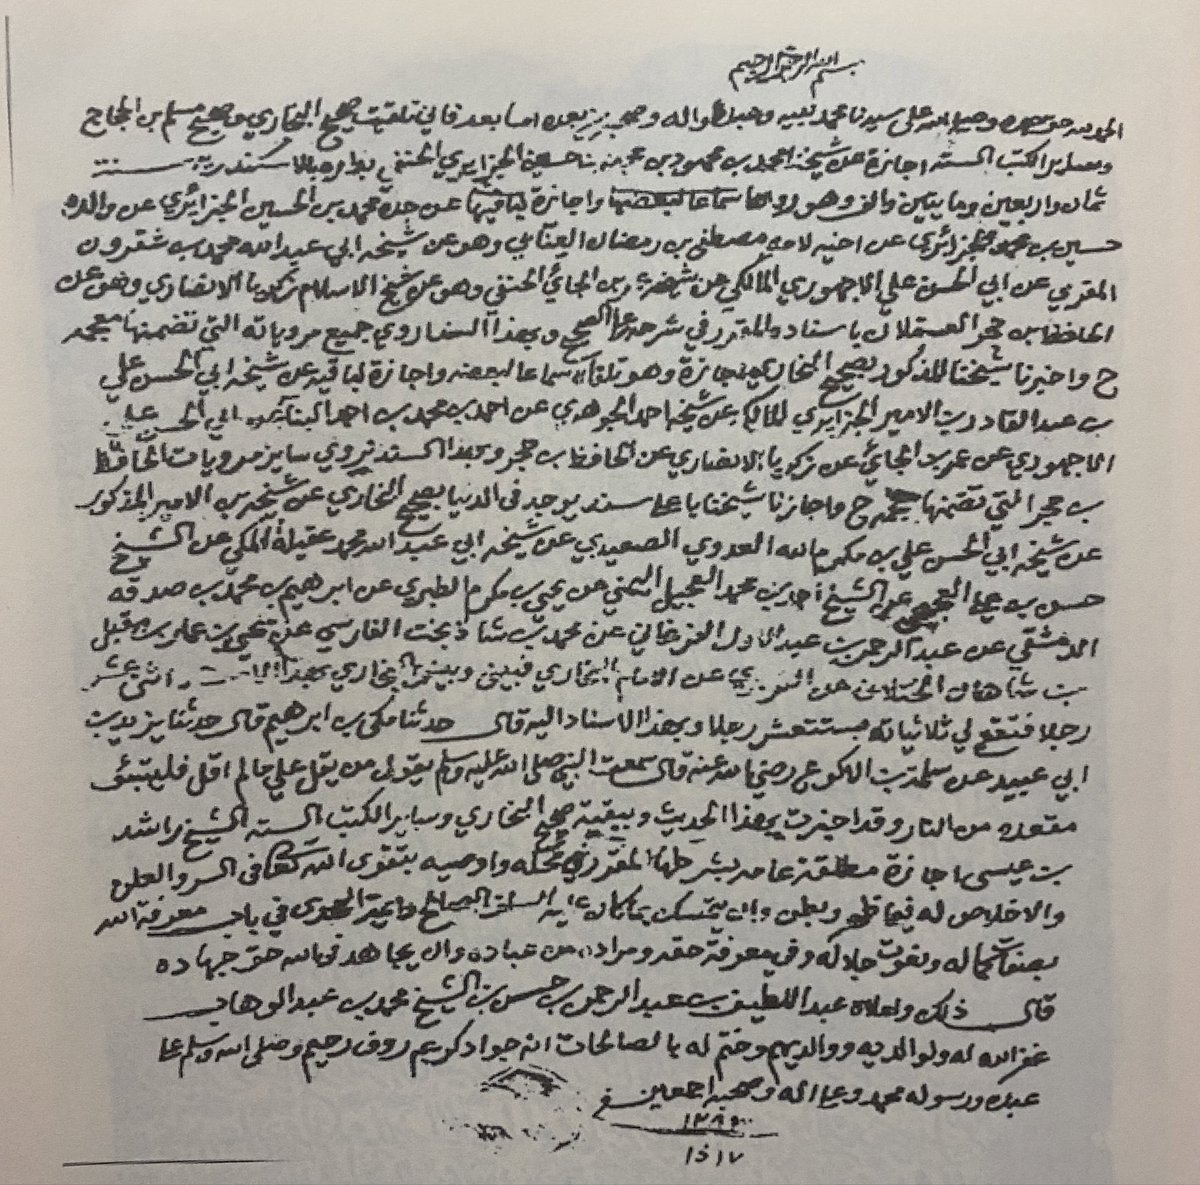 بسم الله الرحمن الرحيم
الحمد لله حق حمده وصلى الله على سيدنا محمد نبيه وعبده وآله وصحبه من بعده اما بعد فاني تلقيت صحيح البخاري وصحيح مسلم بن الحجاج
وساير الكتب الستة اجازة عن شيخنا محمد بن محمود بن محمد بن حسين الجزايري الحنفي بالاسكندرية سنة
ثمان واربعين ومايتين والف وهو رواها سماعا لبعضها واجازة لباقيها عن جده محمد بن الحسين الجزائري عن والده
حسين بن محمد الجزائري عن اخيه لامه مصطفى بن رمضان العنابي وهو عن شيخه ابي عبد الله محمد بن شقرون
المقري عن ابي الحسن علي الاجهوري المالكي عن عمر بن الجائي الحنفي وهو عن شيخ الاسلام زكريا الانصاري وهو عن
الحافظ بن حجر العسقلاني باسناده المقرر في شرحه على الصحيح وبهذا السند اروي جميع مروياته التي تضمنها معجمه
ح واخبرنا شيخنا المذكور بصحيح البخاري اجازة وهو تلقاه سماعا لبعضه واجازة لباقيه عن شيخه ابي الحسن علي
بن عبد القادر بن الامير الجزايري المالكي عن شيخه احمد الجوهري عن احمد بن محمد بن احمد البنا عن ابي الحسن علي
الاجهوري عن عمر بن الجائي عن زكريا الانصاري عن الحافظ بن حجر وبهذا السند نروي ساير مرويات الحافظ
بن حجر التي تضمنها معجمه ح واجازنا شيخنا باعلا سند يوجد في الدنيا بصحيح البخاري عن شيخه بن الامير المذكور
عن شيخه ابي الحسن علي بن مكرم الله العدوي الصعيدي عن شيخه ابي عبد الله محمد عقيلة المكي عن الشيخ
حسن بن علي العجيمي عن الشيخ احمد بن محمد العجيل اليمني عن يحيى بن مكرم الطبري عن ابرهيم بن محمد بن صدقه
الدمشقي عن عبد الرحمن بن عبد الاول الفرغاني عن محمد بن شاذبخت الفارسي عن يحيى بن عمار بن مقبل
بن شاهان الختلاني عن الفربري عن الامام البخاري فبيني وبين البخاري بهذا اثنى عشر
رجلا فتقع لي ثلاثياته بستة عشر رجلا وبهذا الاسناد اليه قال حدثنا مكي بن ابرهيم قال حدثنا يزيد بن
ابي عبيد عن سلمة بن الاكوع رضي الله عنه قال سمعت النبي صلى الله عليه وسلم يقول من يقل علي مالم اقل فليتبوئ
مقعده من النار وقد اخبرت بهذا الحديث وببقية صحيح البخاري وساير الكتب الستة الشيخ راشد
بن عيسى اجازة مطلقة عامه بشرطها المقرر في محله واوصيه بتقوى الله تعالى في السر والعلن
والاخلاص له فيما ظهر وبطن وان يتمسك بما كان عليه السلف الصالح وايمة الهدى في باب معرفة الله
بصفات كماله ونعوت جلاله وفي معرفة حقه ومراده من عباده وان يجاهد في الله حق جهاده
قال ذلك واملاه عبد اللطيف بن عبد الرحمن بن حسن بن الشيخ محمد بن عبد الوهاب
غفر الله له ولوالديه ووالديهم وختم له بالصالحات انه جواد كريم رؤف رحيم وصلى الله وسلم على
عبده ورسوله محمد وعلى اله وصحبه اجمعين